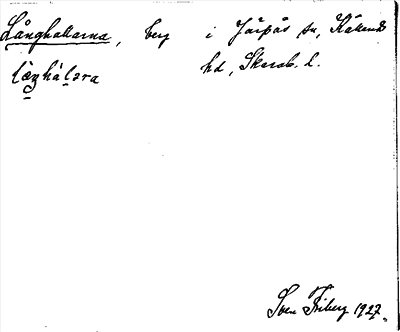 Långhallarna, berg i Järpås sn, Kållands
hd, Skarab. l.
Sven Friberg 1927.